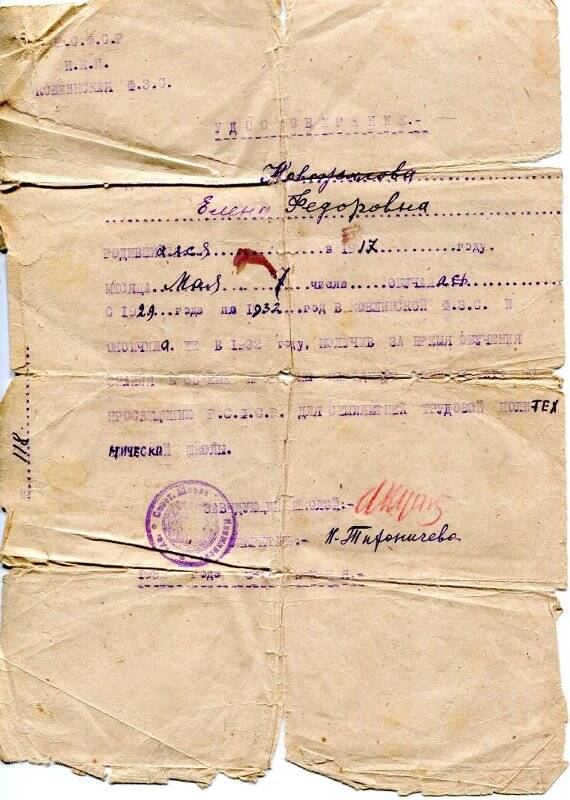 Р.С.Ф.С.Р
Н.К.П.
КОВЖИНСКАЯ Ф.З.С.
УДОСТОВЕРЕНИЕ.-
Елена Федоровна
РОДИВШ алася в 1917 году.
МЕСЯЦА Мая 7 числа ОБУЧАЛ ась
С 1929 года по 1932 год в КОВЖИНСКОЙ Ф.З.С. И
ОКОНЧИЛ а. ЕЕ В 1932 году, ПОЛУЧИВ ЗА ВРЕМЯ ОБУЧЕНИЯ
ЗНАНИЯ В ОБЪЕМЕ
ПРОСВЕЩЕНИЮ Р.С.Ф.С.Р. ДЛЯ СЕМИЛЕТНЕЙ ТРУДОВОЙ ПОЛИТЕХ
НИЧЕСКОЙ ШКОЛЫ.
№ 118
ЗАВЕДУЮЩИЙ ШКОЛОЙ:-
Н-Тихоничева
года